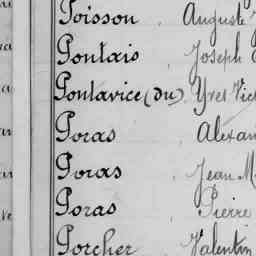 Poisson Auguste
Pontais Joseph
Pontavice (du) Yves Vic
Poras Alexan
Poras Jean M
Poras Pierre
Porcher Valentin